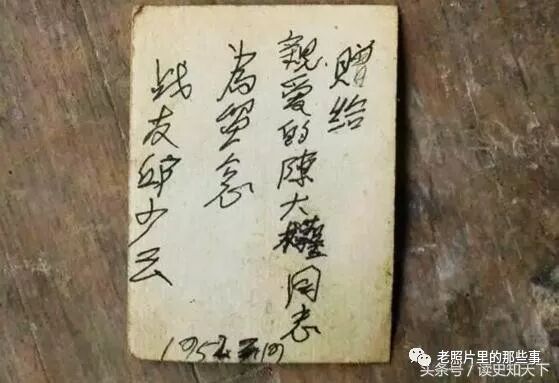 赠给
親爱的陳大權同志
為留念
战友邱少云
1952
老照片里的那些事
头条号/读史知天下